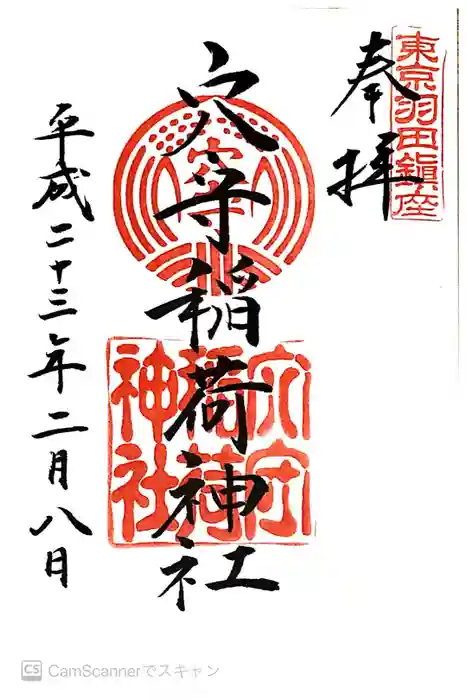 東京羽田鎮座
奉拝
穴守稲荷神社
穴守稲荷神社
平成二十三年二月八日
CS CamScannerでスキャン